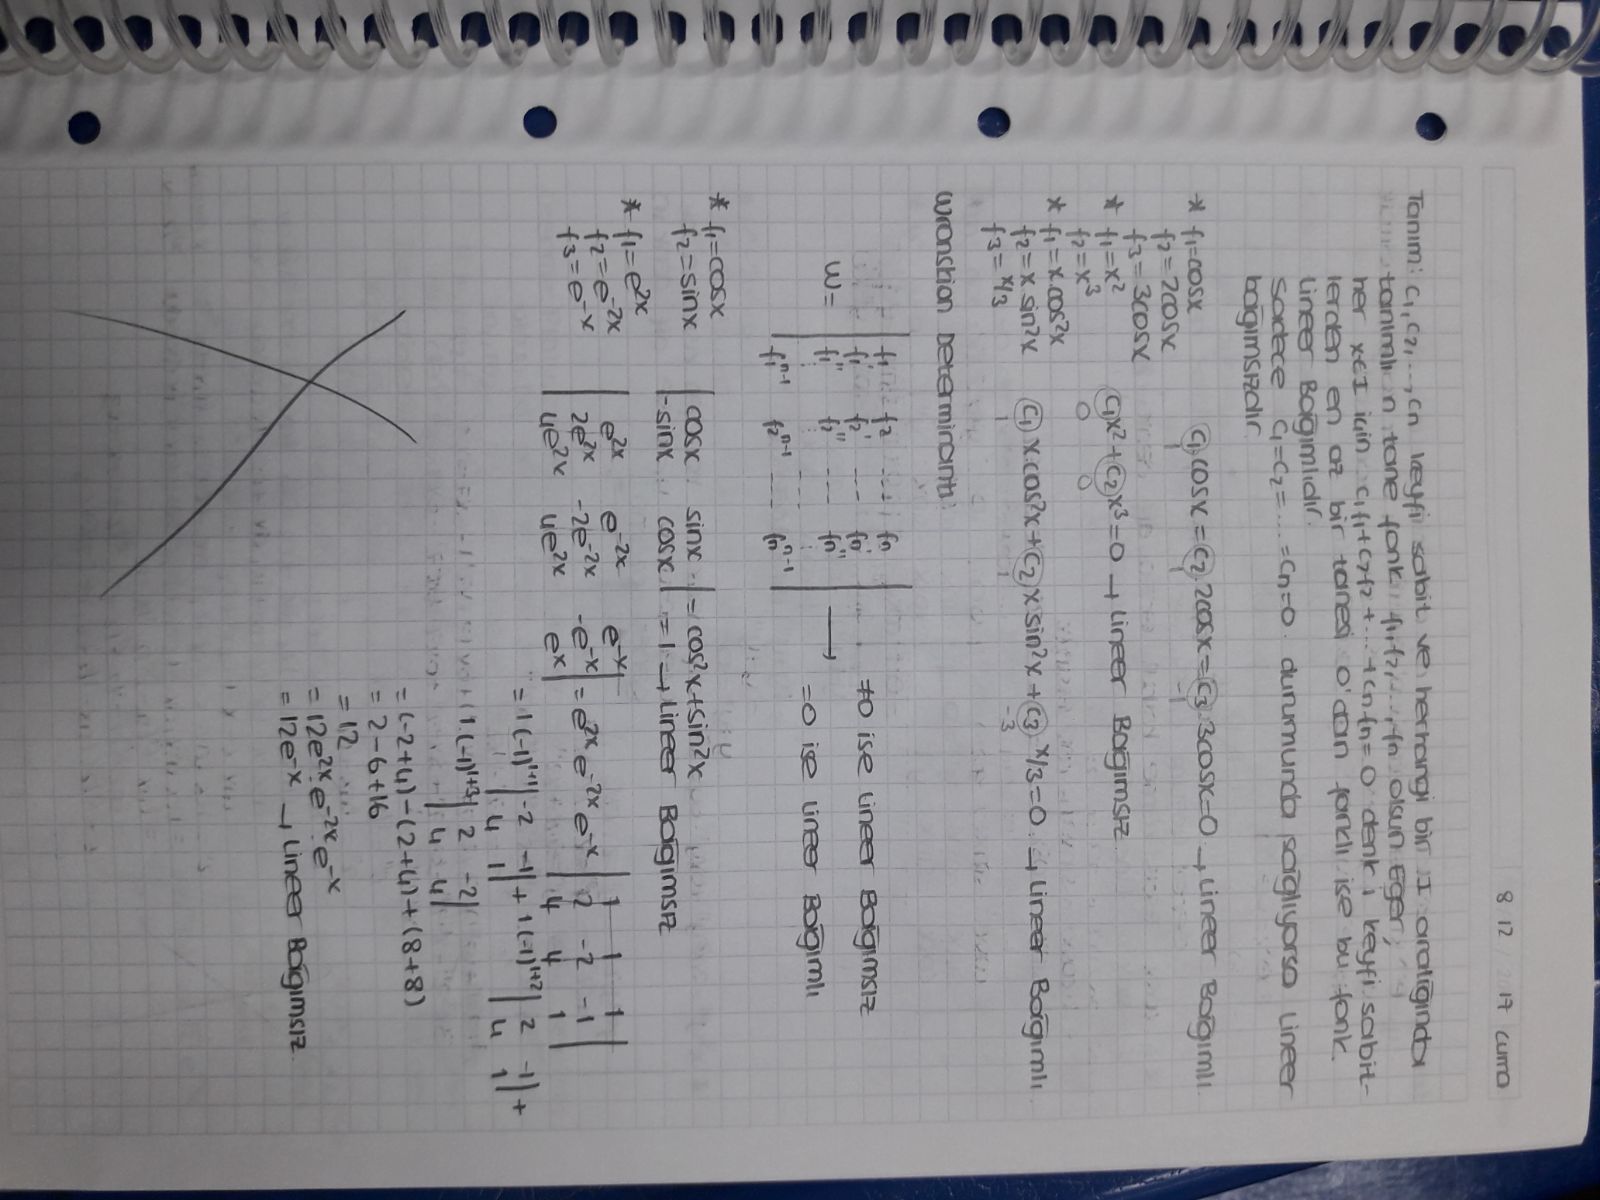 8 12 17 Cuma
Tanım: c₁, c₂, ..., cn keyfi sabit ve herhangi bir I aralığında
tanımlı n tane fonk f₁, f₂, ..., fn olsun Eger,
her x∈I için c₁f₁+c₂f₂+...+cnfn=0 denk i keyfi sabit-
lerden en az bir tanesi 0'dan farklı ise bu fonk.
Lineer Bağımlıdır.
Sadece c₁=c₂=...=cn=0 durumunda sağlıyorsa Lineer
bağımsızdır.
* f₁=cosx c₁.cosx=c₂.2cosx=c₃.3cosx=0 → Lineer Bağımlı.
1 1 -1
f₂=2cosx
f₃=3cosx
* f₁=x² c₁x²+c₂x³=0 → Lineer Bağımsız.
f₂=x³ 0 0
* f₁=x.cos²x
f₂=x sin²x c₁ x.cos²x+c₂ x sin²x+c₃ x/3=0 → Lineer Bağımlı
f₃=x/3 1 1 -3
Wronskion Determinantı:
| f₁ f₂ --- fn |
| f₁' f₂' --- fn' | ≠0 ise Lineer Bağımsız
W= | f₁'' f₂'' --- fn'' | →
| ... ... --- ... | =0 ise Lineer Bağımlı
| f₁ⁿ⁻¹ f₂ⁿ⁻¹ --- fnⁿ⁻¹ |
* f₁=cosx
f₂=sinx | cosx sinx | = cos²x+sin²x
| -sinx cosx | =1 → Lineer Bağımsız
* f₁=e²ˣ
f₂=e⁻²ˣ | e²ˣ e⁻²ˣ e⁻ˣ | | 1 1 1 |
f₃=e⁻ˣ | 2e²ˣ -2e⁻²ˣ -e⁻ˣ | = e²ˣ e⁻²ˣ e⁻ˣ | 2 -2 -1 |
| 4e²ˣ 4e²ˣ eˣ | | 4 4 1 |
= 1(-1)¹⁺¹ | -2 -1 | + 1.(-1)¹⁺² | 2 -1 | +
| 4 1 | | 4 1 |
1.(-1)¹⁺³ | 2 -2 |
| 4 4 |
= (-2+4)-(2+4)+(8+8)
= 2-6+16
= 12
= 12e²ˣ.e⁻²ˣ.e⁻ˣ
= 12e⁻ˣ → Lineer Bağımsız.